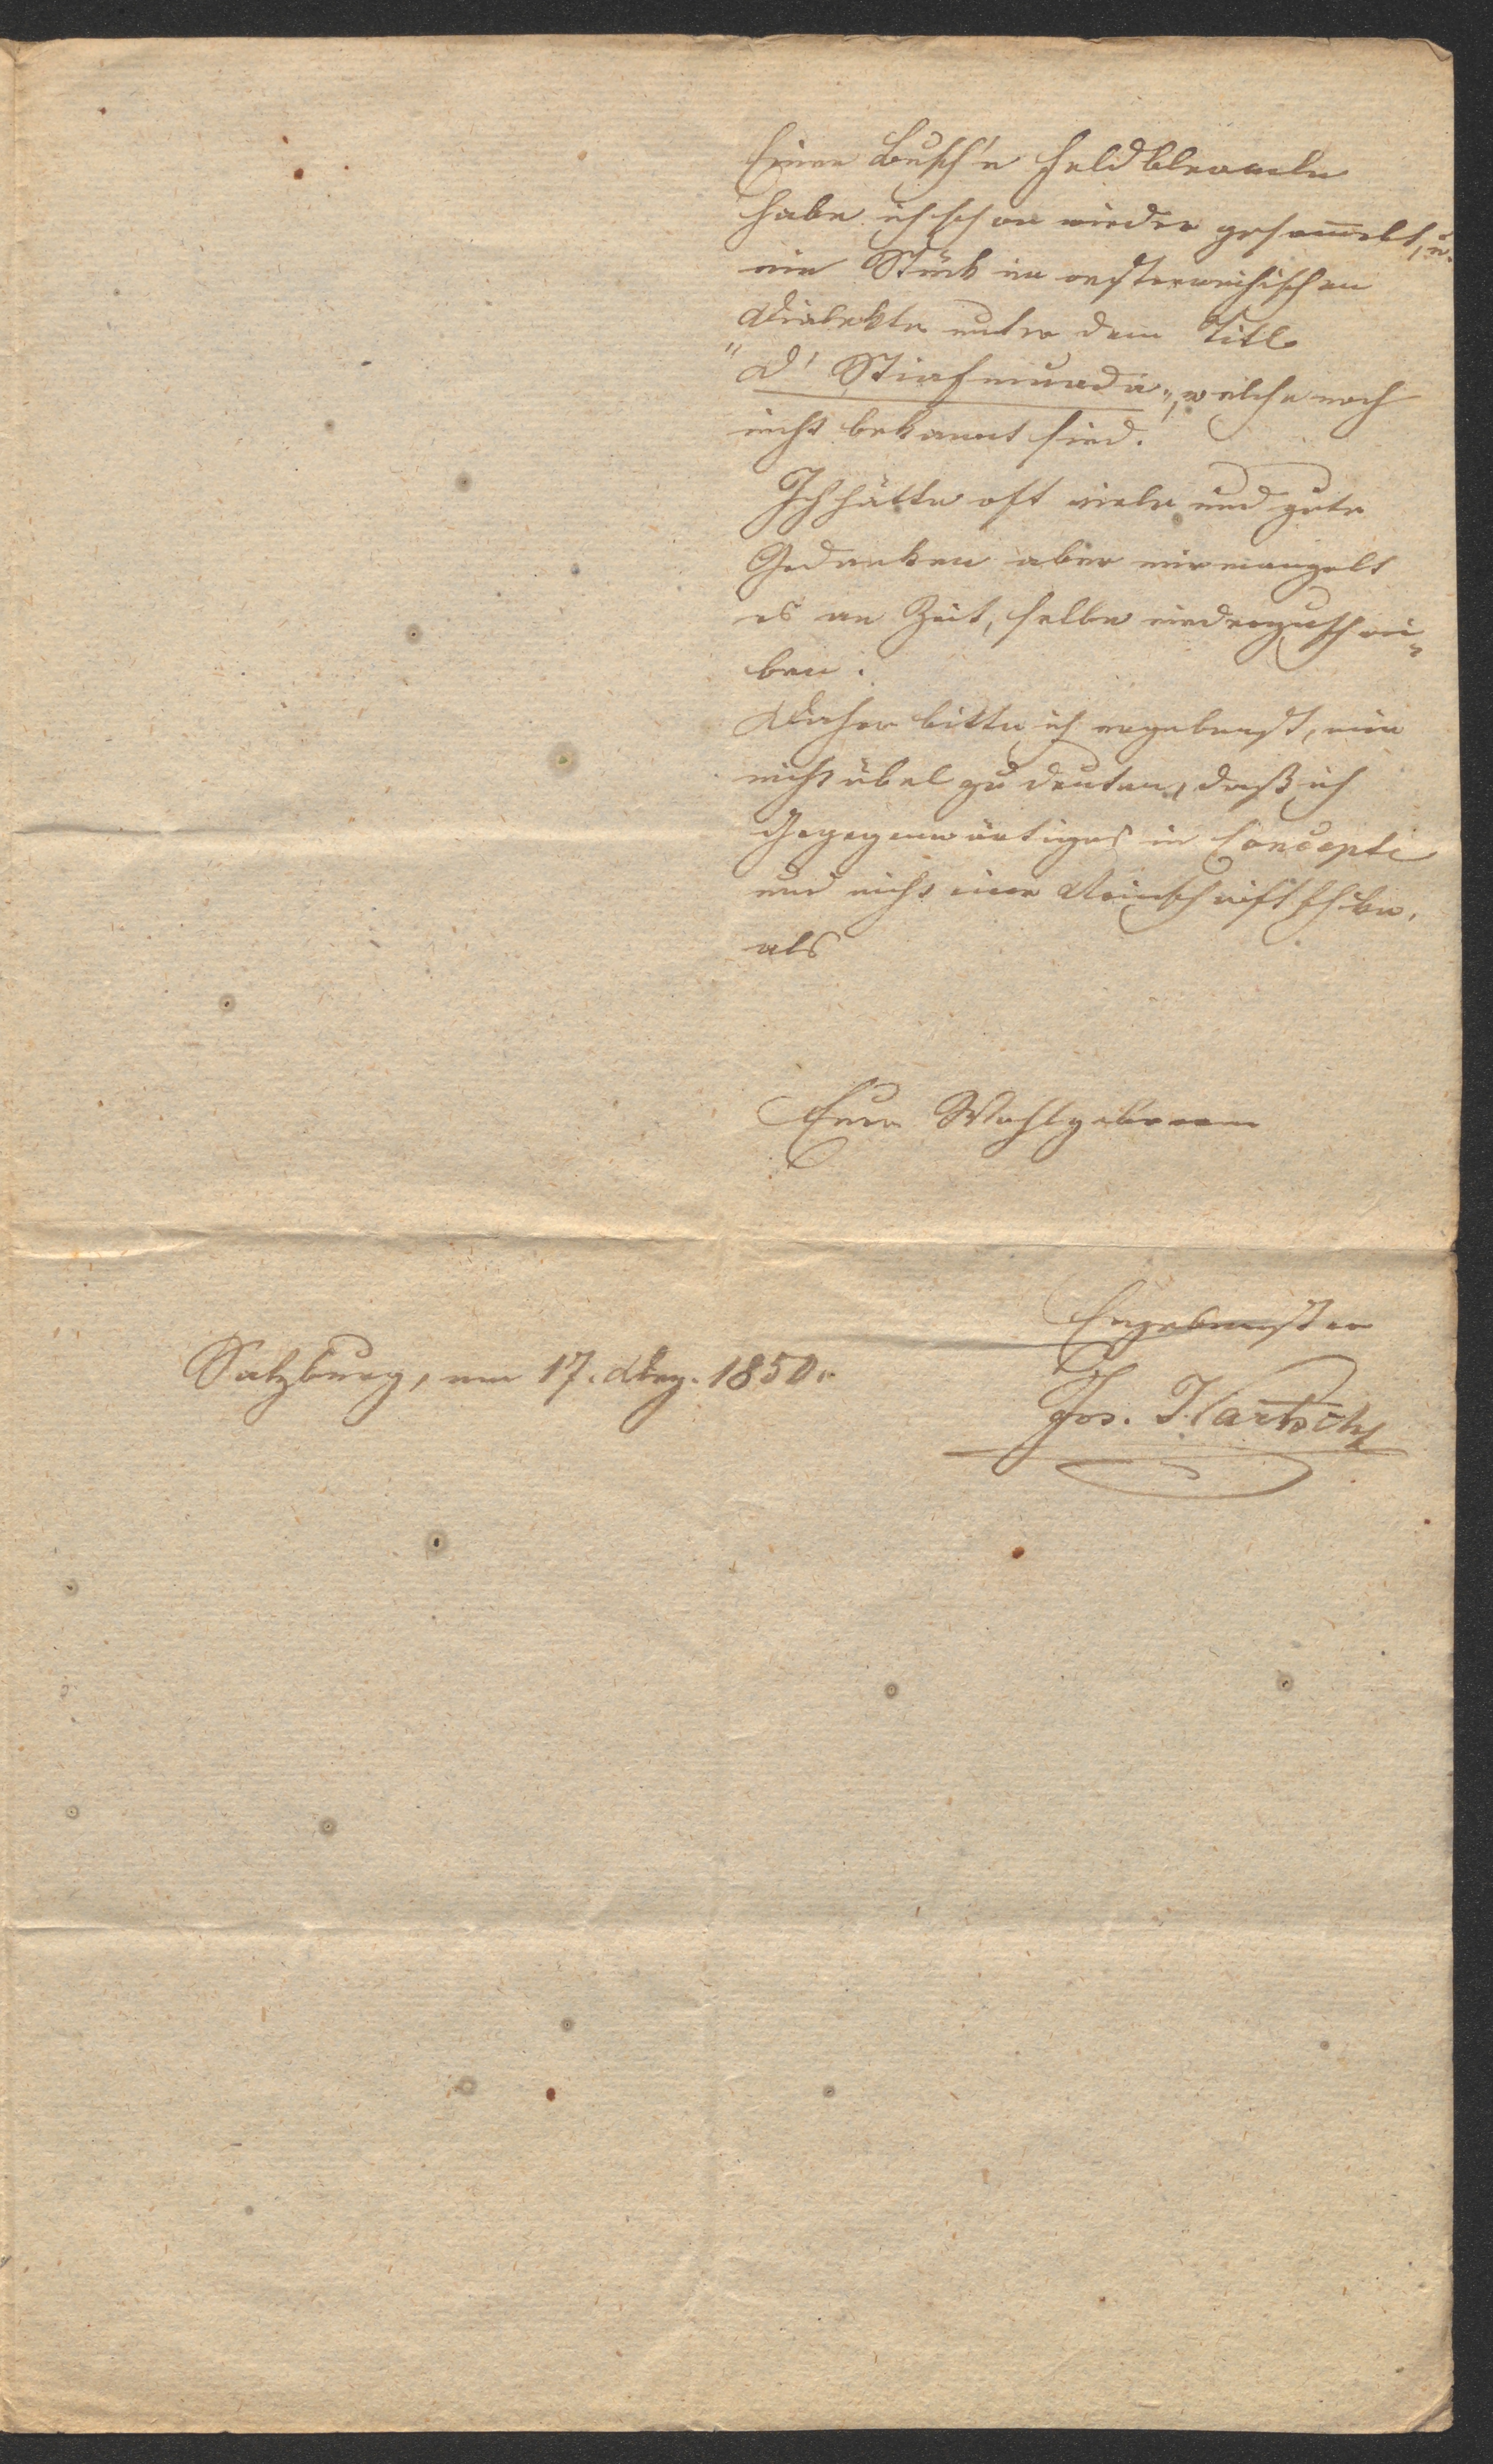 Einen Busch'n Feldbleameln
habe ich schon wieder gesammelt, u.
ein Stück im oesterreichischen
Dialekte unter dem Titl
"D' Stiafmuada", welche noch
nicht bekannt sind.
Ich hätte oft viele und gute
Gedanken aber mir mangelt
es an Zeit, selbe niederzuschrei-
ben.
Daher bitte ich ergebenst, mir
nicht übel zu deuten, daß ich
Gegenwärtiges in Concepte
und nicht einer Reinschrift
als
Euer Wohlgeboren
Ergebenster
Salzburg, am 17. Dez. 1850.
Jos. Kartsch